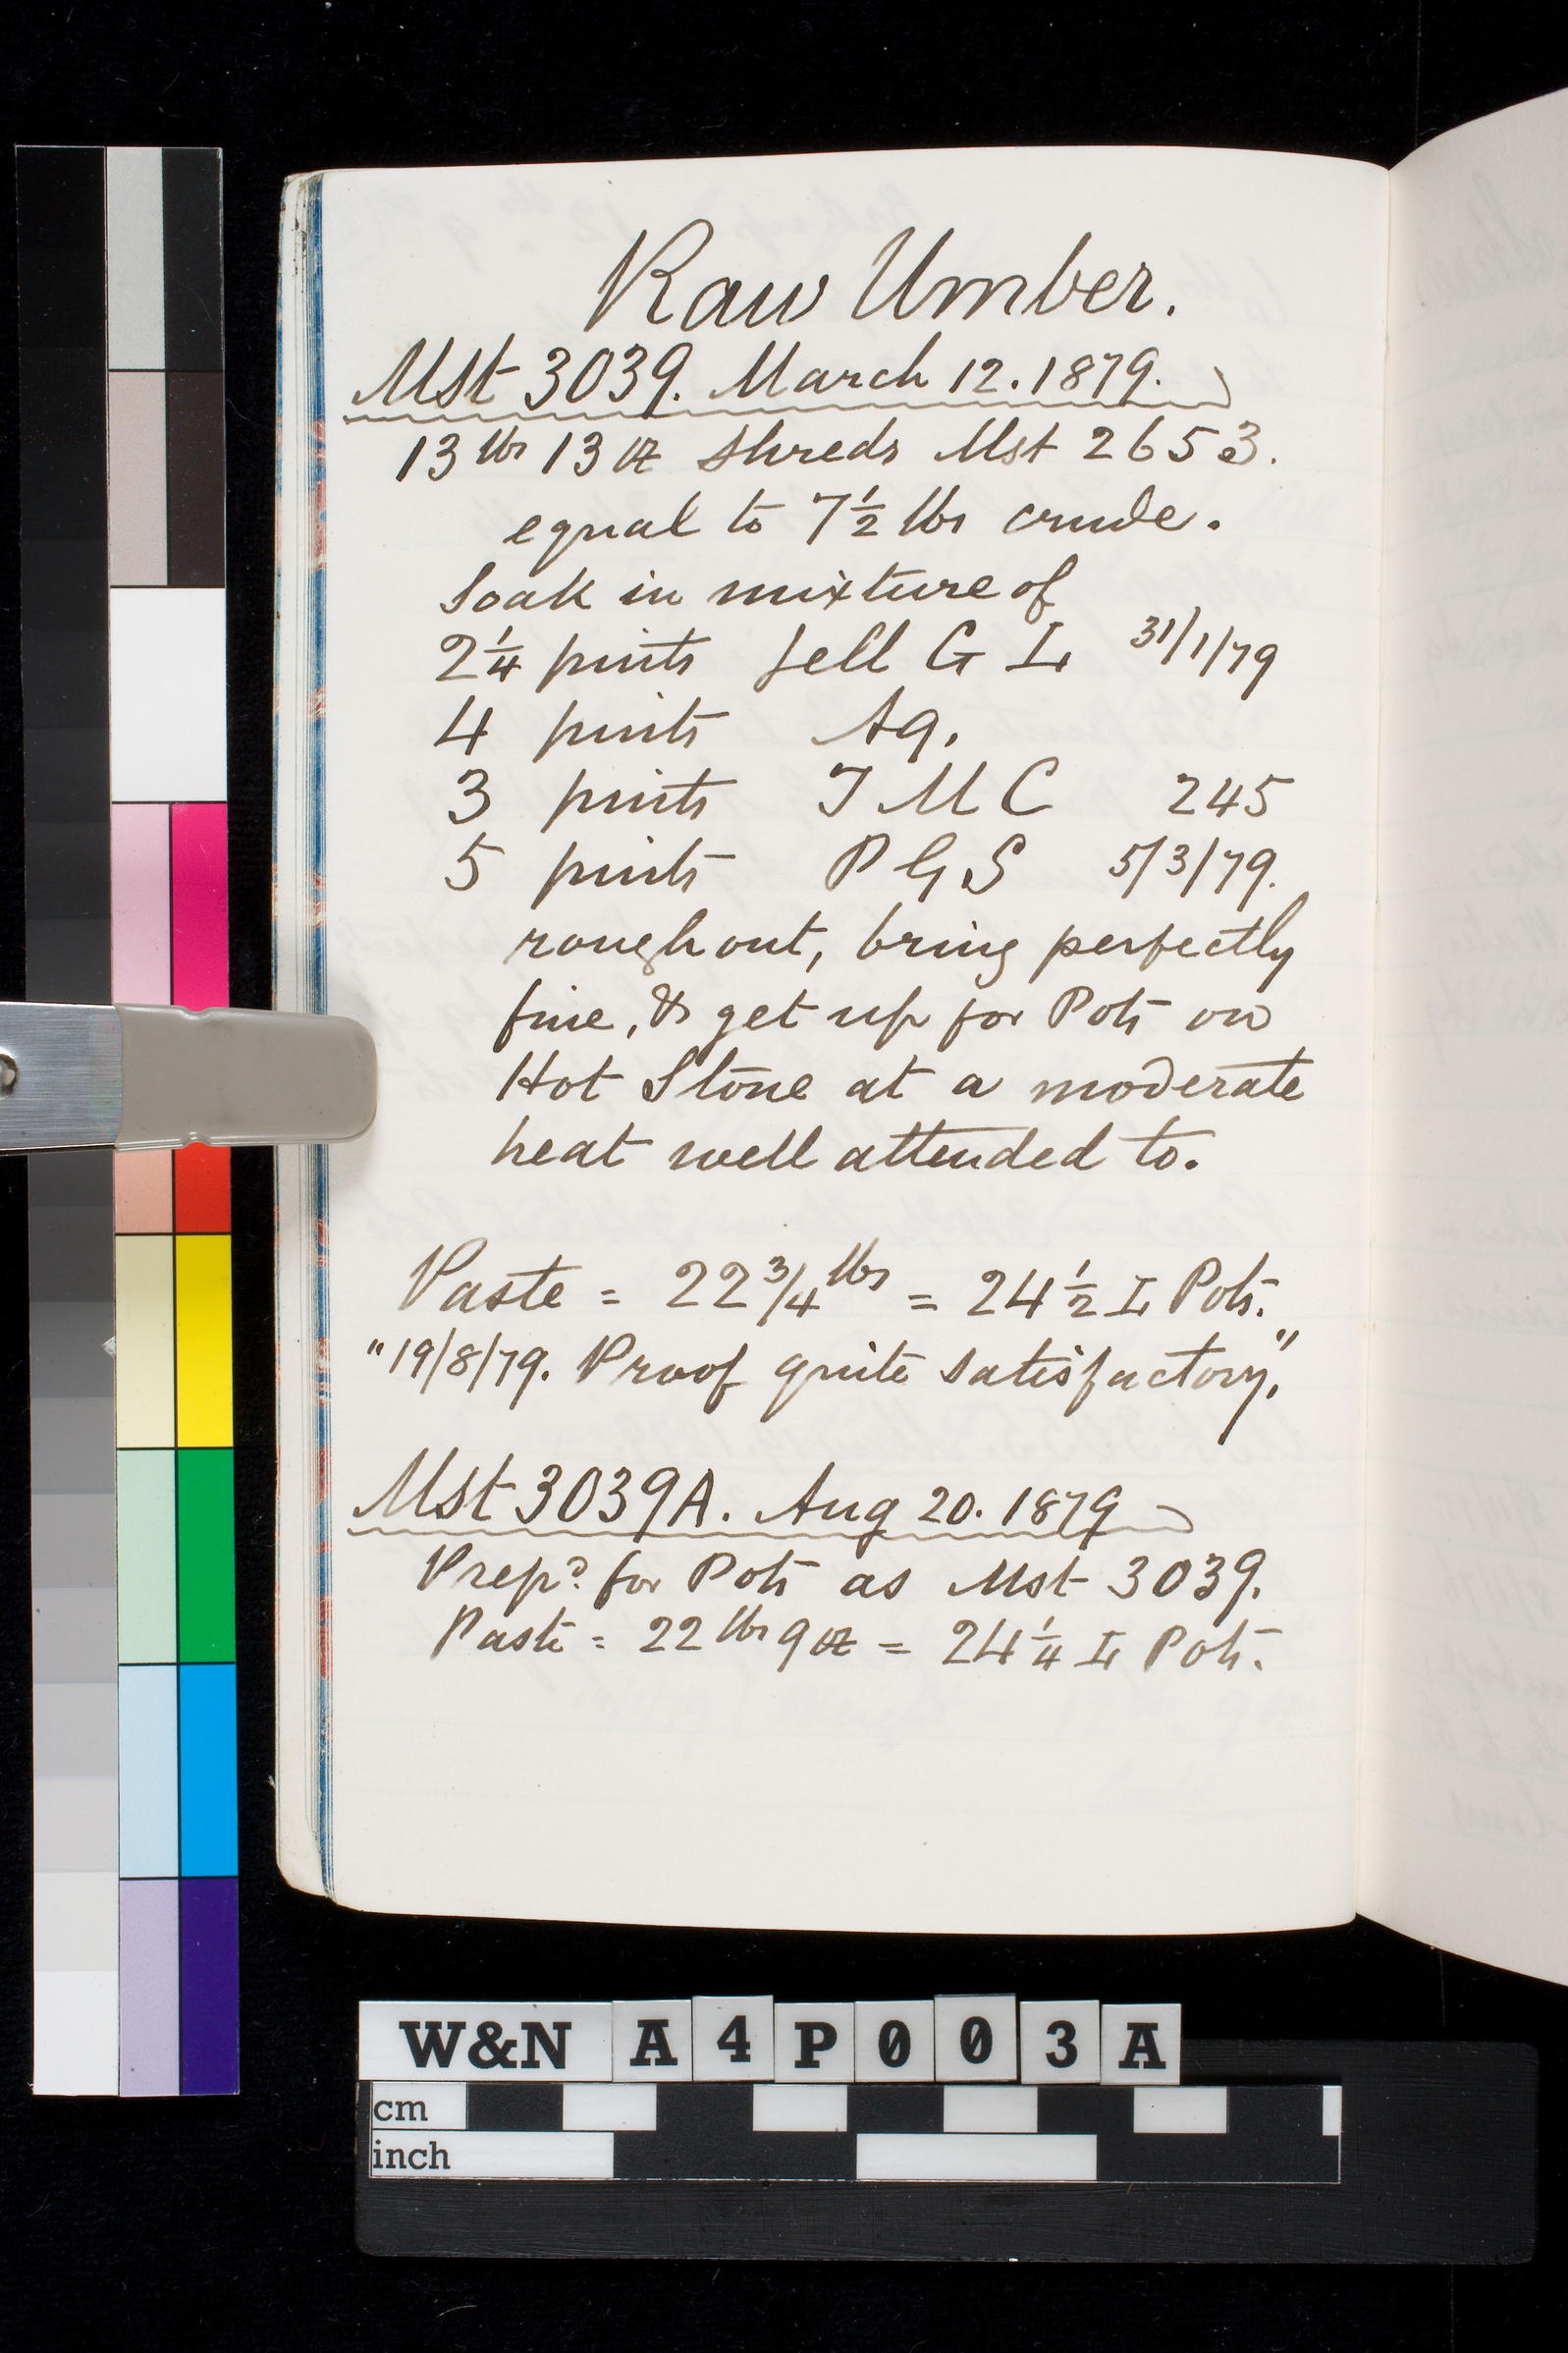 Raw Umber.
Mst 3039. March 12. 1879.
13 lbs 13 oz Shreds Mst 2653.
equal to 7 1/2 lbs crude.
Soak in mixture of
2 1/4 pints Jell G I 31/1/79
4 pints Aq.
3 pints T M C 245
5 pints P G S 5/3/79.
rough out, bring perfectly
fine, & get up for Pots on
Hot Stone at a moderate
heat well attended to.
Paste = 22 3/4 lbs = 24 1/2 I Pots.
"19/8/79. Proof quite satisfactory."
Mst 3039A. Aug 20. 1879
Prepd. for Pots as Mst 3039.
Paste = 22 lbs 9 oz = 24 1/4 I Pots.
W&N A4P003A
cm
inch